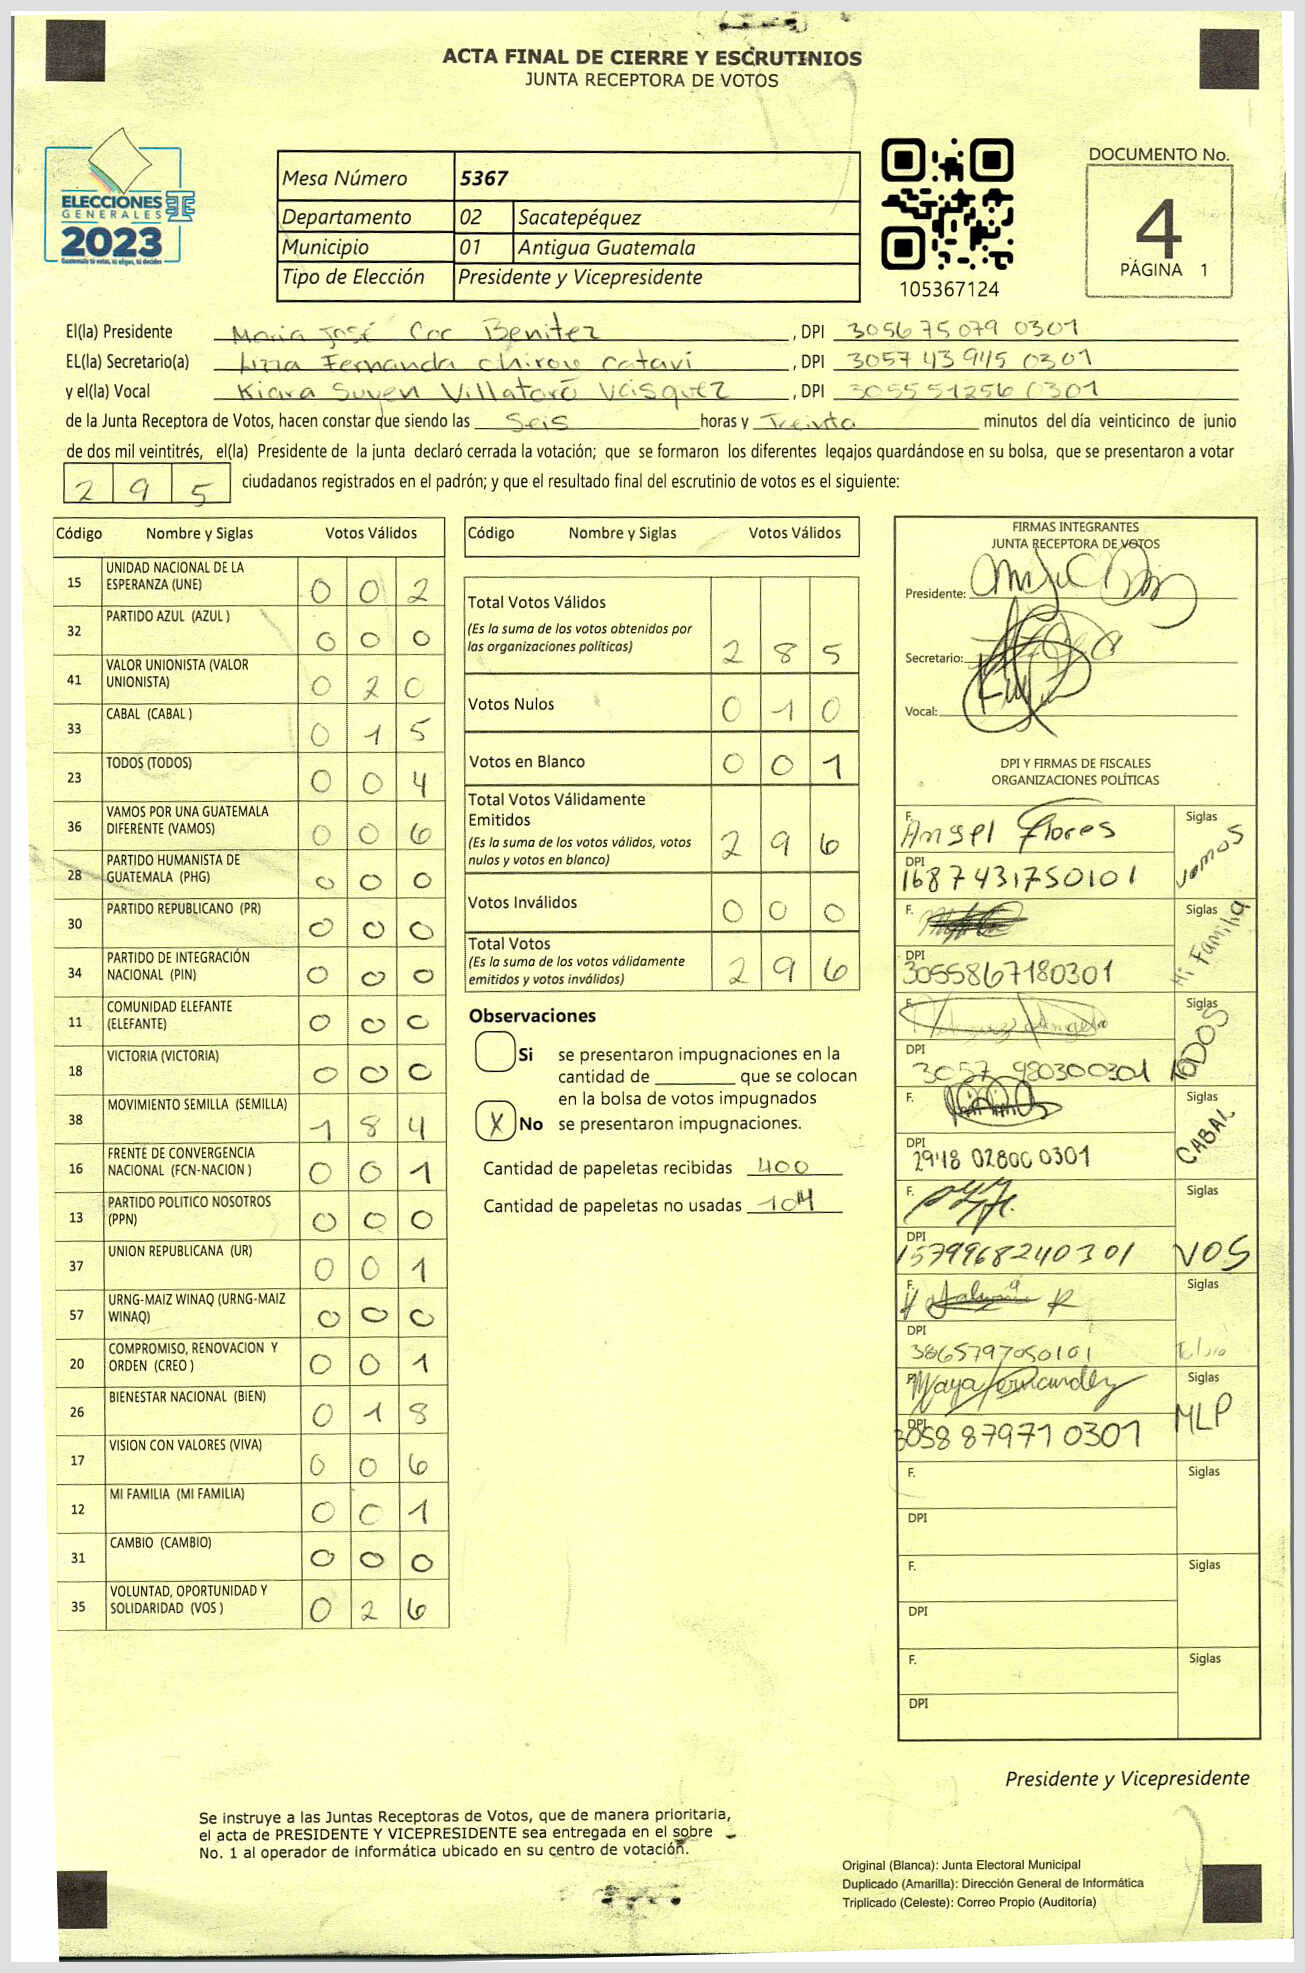 ACTA FINAL DE CIERRE Y ESCRUTINIOS
JUNTA RECEPTORA DE VOTOS
ELECCIONES
GENERALES
2023
Mesa Número 5367
Departamento 02 Sacatepéquez
Municipio 01 Antigua Guatemala
Tipo de Elección Presidente y Vicepresidente
105367124
DOCUMENTO No.
4
PÁGINA 1
El(la) Presidente Maria José Coc Benitez, DPI 305675079 0301
EL(la) Secretario(a) Lizza Fernanda Chiroy Cataví, DPI 3057 43 945 0301
y el(la) Vocal Kiara Suyen Villatoro Vásquez, DPI 305551256 0301
de la Junta Receptora de Votos, hacen constar que siendo las Seis horas y Treinta minutos del día veinticinco de junio
de dos mil veintitrés, el(la) Presidente de la junta declaró cerrada la votación; que se formaron los diferentes legajos quardándose en su bolsa, que se presentaron a votar
2 9 5 ciudadanos registrados en el padrón; y que el resultado final del escrutinio de votos es el siguiente:
Código Nombre y Siglas Votos Válidos
15 UNIDAD NACIONAL DE LA ESPERANZA (UNE) 0 0 2
32 PARTIDO AZUL (AZUL ) 0 0 0
41 VALOR UNIONISTA (VALOR UNIONISTA) 0 2 0
33 CABAL (CABAL ) 0 1 5
23 TODOS (TODOS) 0 0 4
36 VAMOS POR UNA GUATEMALA DIFERENTE (VAMOS) 0 0 6
28 PARTIDO HUMANISTA DE GUATEMALA (PHG) 0 0 0
30 PARTIDO REPUBLICANO (PR) 0 0 0
34 PARTIDO DE INTEGRACIÓN NACIONAL (PIN) 0 0 0
11 COMUNIDAD ELEFANTE (ELEFANTE) 0 0 0
18 VICTORIA (VICTORIA) 0 0 0
38 MOVIMIENTO SEMILLA (SEMILLA) 1 8 4
16 FRENTE DE CONVERGENCIA NACIONAL (FCN-NACION ) 0 0 1
13 PARTIDO POLITICO NOSOTROS (PPN) 0 0 0
37 UNION REPUBLICANA (UR) 0 0 1
57 URNG-MAIZ WINAQ (URNG-MAIZ WINAQ) 0 0 0
20 COMPROMISO, RENOVACION Y ORDEN (CREO ) 0 0 1
26 BIENESTAR NACIONAL (BIEN) 0 1 8
17 VISION CON VALORES (VIVA) 0 0 6
12 MI FAMILIA (MI FAMILIA) 0 0 1
31 CAMBIO (CAMBIO) 0 0 0
35 VOLUNTAD, OPORTUNIDAD Y SOLIDARIDAD (VOS ) 0 2 6
Código Nombre y Siglas Votos Válidos
Total Votos Válidos
(Es la suma de los votos obtenidos por
las organizaciones políticas) 2 8 5
Votos Nulos 0 1 0
Votos en Blanco 0 0 1
Total Votos Válidamente
Emitidos
(Es la suma de los votos válidos, votos
nulos y votos en blanco) 2 9 6
Votos Inválidos 0 0 0
Total Votos
(Es la suma de los votos válidamente
emitidos y votos inválidos) 2 9 6
Observaciones
Si se presentaron impugnaciones en la
cantidad de ________ que se colocan
en la bolsa de votos impugnados
X No se presentaron impugnaciones.
Cantidad de papeletas recibidas 400
Cantidad de papeletas no usadas 104
FIRMAS INTEGRANTES
JUNTA RECEPTORA DE VOTOS
Presidente:
Secretario:
Vocal:
DPI Y FIRMAS DE FISCALES
ORGANIZACIONES POLÍTICAS
F. Angel Flores Siglas
DPI 1687431750101 Vamos
F. Siglas
DPI 3055867180301 Mi Familia
F. Siglas
DPI 3057 980300301 TODOS
F. Siglas
DPI 2948 02800 0301 CABAL
F. Siglas
DPI 1579968240301 VOS
F. Siglas
DPI 3865797050101
F. Maya Fernandez Siglas
DPI 3058 87971 0301 MLP
F. Siglas
DPI
F. Siglas
DPI
F. Siglas
DPI
Presidente y Vicepresidente
Se instruye a las Juntas Receptoras de Votos, que de manera prioritaria,
el acta de PRESIDENTE Y VICEPRESIDENTE sea entregada en el sobre
No. 1 al operador de informática ubicado en su centro de votación.
Original (Blanca): Junta Electoral Municipal
Duplicado (Amarilla): Dirección General de Informática
Triplicado (Celeste): Correo Propio (Auditoría)